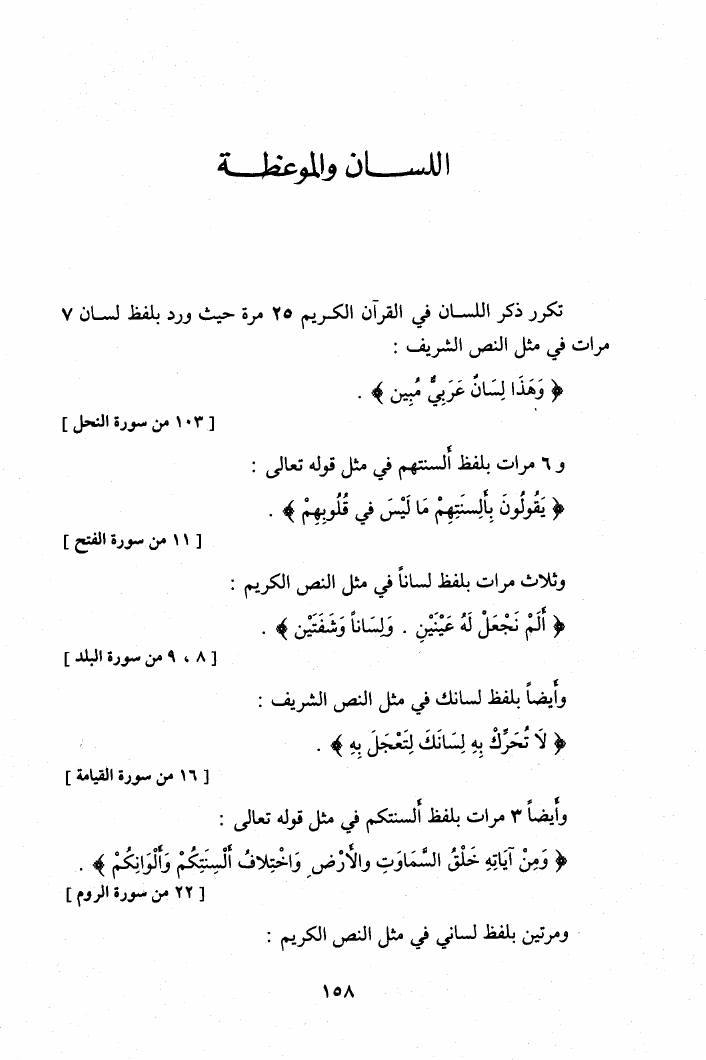 اللسان والموعظة
تكرر ذكر اللسان في القرآن الكريم ٢٥ مرة حيث ورد بلفظ لسان ٧
مرات في مثل النص الشريف :
﴿ وَهَذَا لِسَانٌ عَرَبِيٌّ مُبِين ﴾ .
[ ١٠٣ من سورة النحل ]
و ٦ مرات بلفظ ألسنتهم في مثل قوله تعالى :
﴿ يَقُولُونَ بِأَلِسنَتِهِمْ مَا لَيْسَ في قُلُوبِهِمْ ﴾ .
[ ١١ من سورة الفتح ]
وثلاث مرات بلفظ لساناً في مثل النص الكريم :
﴿ أَلَمْ نَجْعَلْ لَهُ عَيْنَيْنِ . وَلِسَاناً وَشَفَتَيْن ﴾ .
[ ٨ ، ٩ من سورة البلد ]
وأيضاً بلفظ لسانك في مثل النص الشريف :
﴿ لَا تُحَرِّكْ بِهِ لِسَانَكَ لِتَعْجَلَ بِهِ ﴾ .
[ ١٦ من سورة القيامة ]
وأيضاً ٣ مرات بلفظ ألسنتكم في مثل قوله تعالى :
﴿ وَمِنْ آيَاتِهِ خَلْقُ السَّمَاوَتِ والأَرْضِ وَاخْتِلافُ أَلْسِنَتِكُمْ وَأَلْوَانِكُمْ ﴾ .
[ ٢٢ من سورة الروم ]
ومرتين بلفظ لساني في مثل النص الكريم :
١٥٨